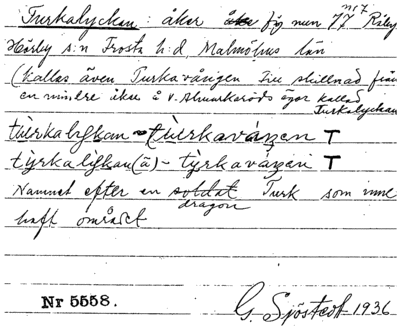 Turkalyckan: åker åker fig num 77 nr 7 Räby
Hörby s:n Frosta h:d, Malmöhus län
(kallas även Turkavången till skillnad från
en mindre åker å V. Almarkaröds ägor kallad
Turkalyckan
Namnet efter en soldat Turk som inne
dragon
haft området
Nr 5558. G. Sjöstedt 1936